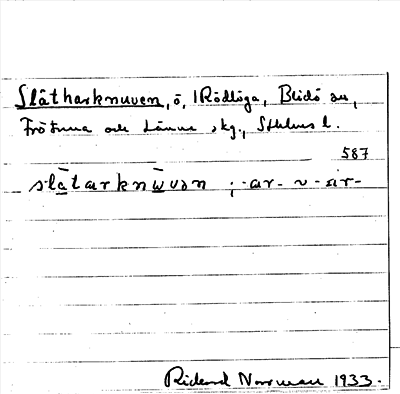 Slätharknuven, ö, i Rödlöga, Blidö sn,
Frötuna och Länna skg., Sthlms l.
587
slätarknüvən ; -ar- v -är-
Rickard Norrman 1933.